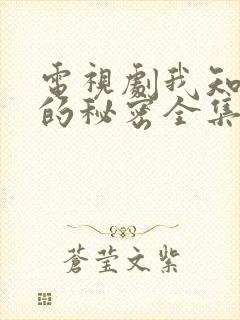 電視劇我知
的秘密全集
蒼莹文紫